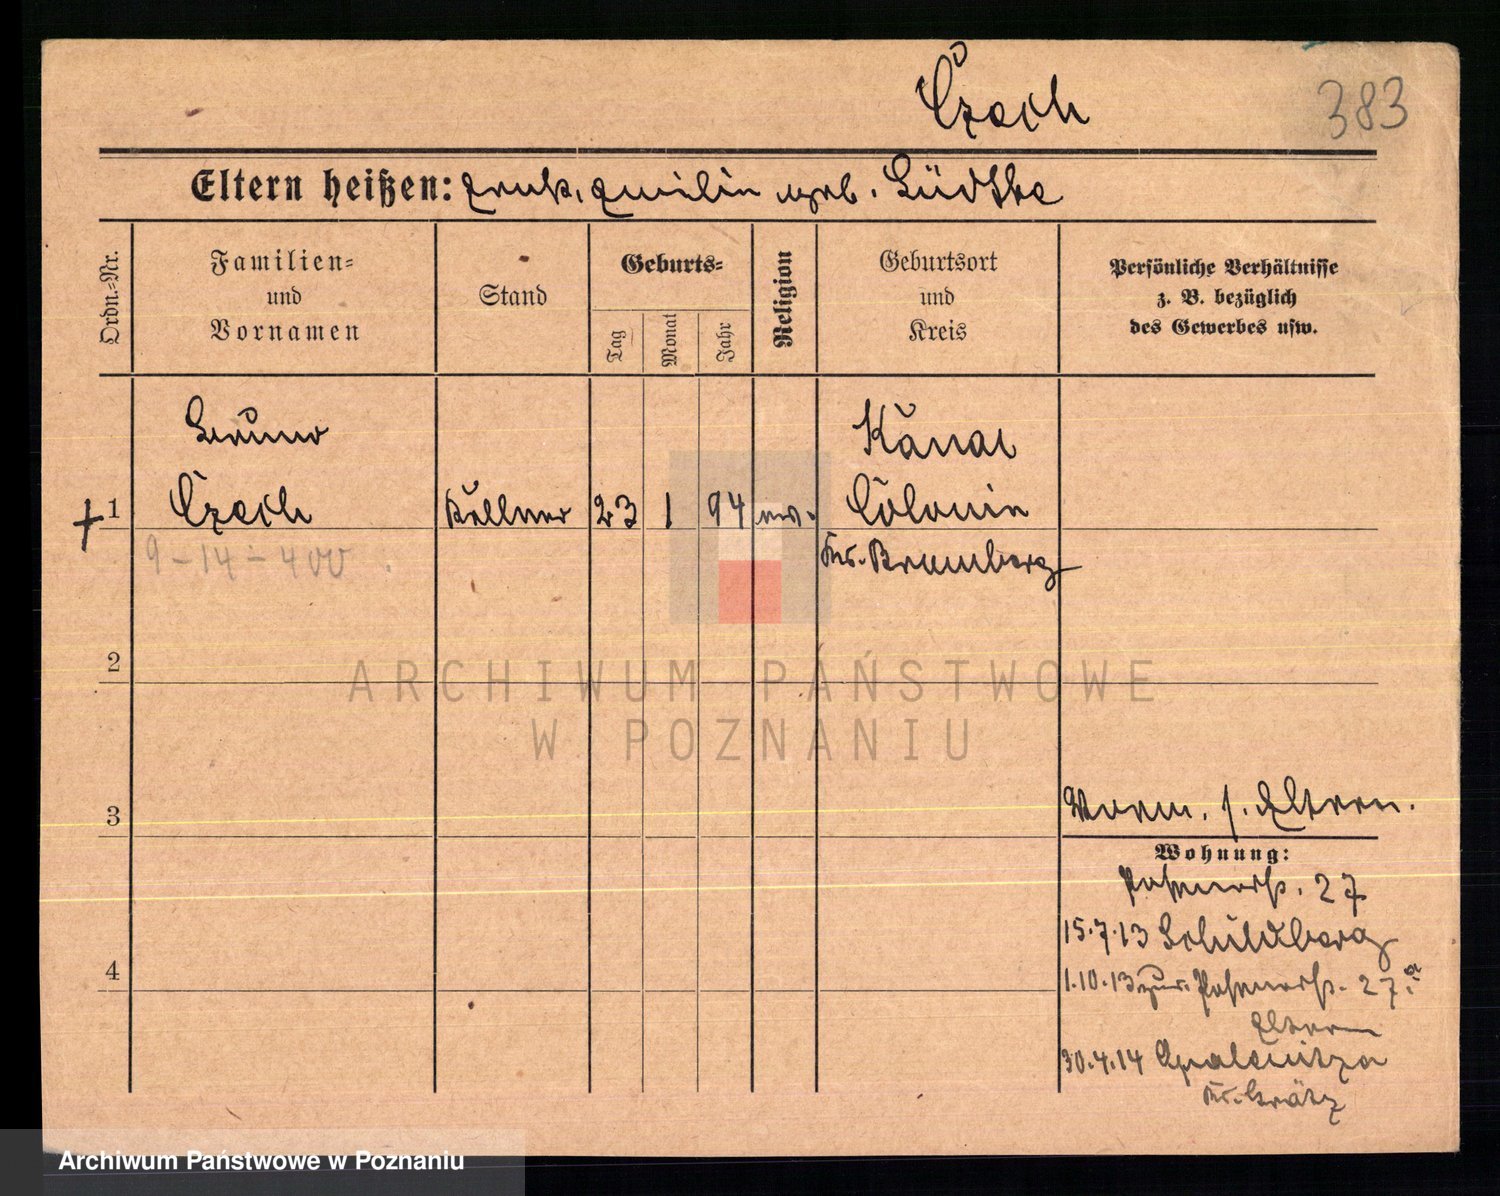 Czech
383
Eltern heißen: Frank, Emilie geb. Lüdtke
Ordn.-Nr.
Familien- und Vornamen
Stand
Geburts-
Tag
Monat
Jahr
Religion
Geburtsort und Kreis
Persönliche Verhältnisse z. B. bezüglich des Gewerbes usw.
Bruno
Czech
1
Kellner
23
1
94
ev.
Kanal
Colonie
Kr. Bromberg
9-14-400
2
ARCHIWUM PAŃSTWOWE
W POZNANIU
3
Vorm. s. Eltern.
Wohnung:
Posenerstr. 27
15.7.13 Schildberg
1.10.13 zur. Posenerstr. 27a
Eltern
4
30.4.14 Opalenitza
Kr. Grätz
Archiwum Państwowe w Poznaniu